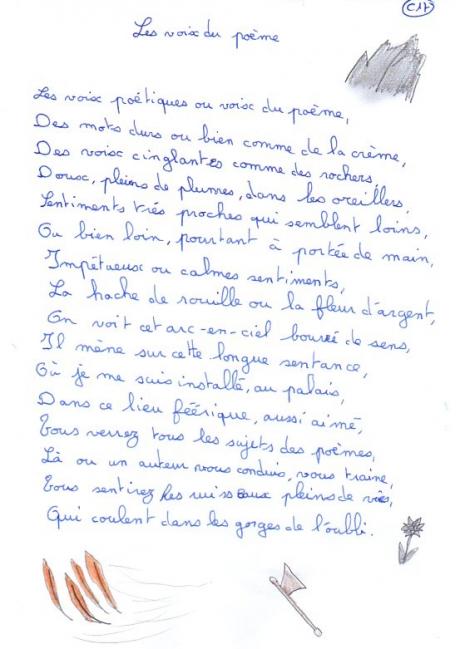 C17
Les voix du poème
Les voix poétiques ou voix du poème,
Des mots durs ou bien comme de la crème,
Des voix cinglantes comme des rochers,
Doux, pleins de plumes, dans les oreillers,
Sentiments très proches qui semblent loins,
Ou bien loin, pourtant à portée de main,
Impétueux ou calmes sentiments,
La hache de rouille ou la fleur d'argent,
On voit cet arc-en-ciel bourré de sens,
Il mène sur cette longue sentance,
Où je me suis installé, au palais,
Dans ce lieu féérique, aussi aimé,
Vous verrez tous les sujets des poèmes,
Là ou un auteur vous conduis, vous traine,
Vous sentirez les ruisseaux pleins de vies,
Qui coulent dans les gorges de l'oubli.